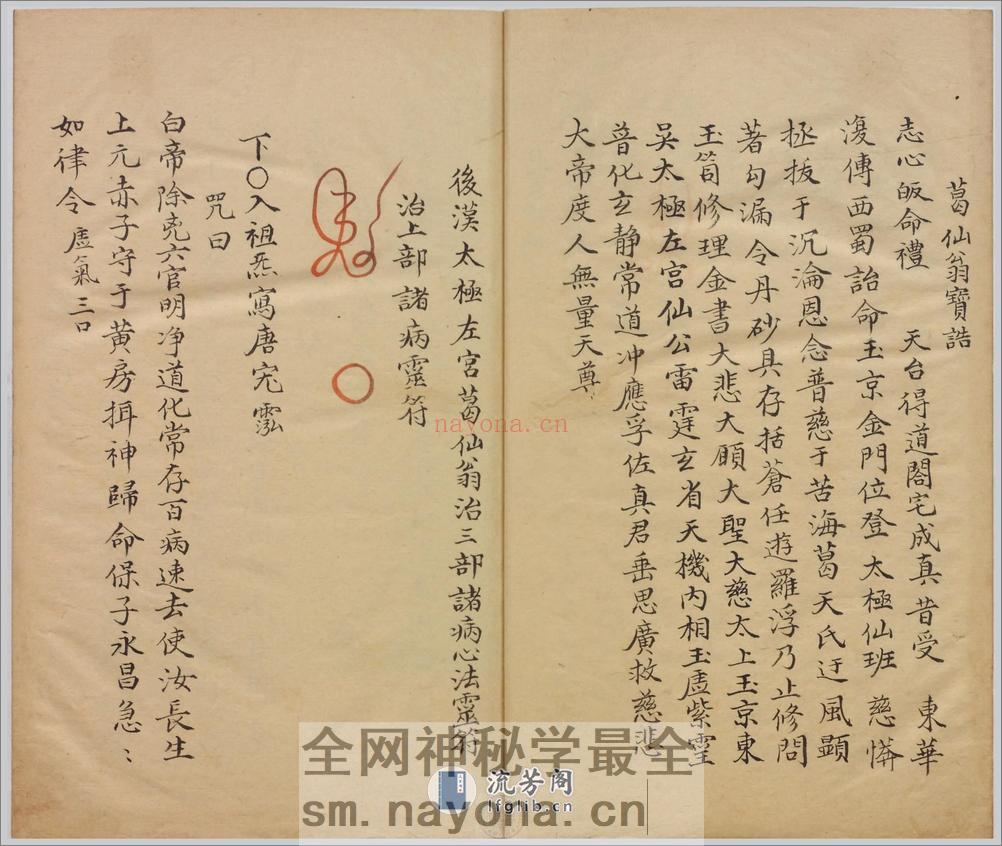 葛仙翁寶誥
志心皈命禮 天台得道閣宅成真昔受 東華
復傳西蜀詔命玉京金門位登 太極仙班 慈憐
拯拔于沉淪恩念普慈于苦海葛天氏迓風顯
著勾漏令丹砂具存括蒼任遊羅浮乃止修問
玉笥修理金書大悲大願大聖大慈太上玉京東
吳太極左宮仙公雷霆玄省天機內相玉虛紫靈
普化玄靜常道冲應孚佐真君垂思廣救慈悲
大帝度人無量天尊
後漢太極左宮葛仙翁治三部諸病心法靈符
治上部諸病靈符
下〇入祖炁寫唐宄
咒曰
白帝除兇六官明净道化常存百病速去使汝長生
上元赤子守于黄房揖神歸命保子永昌急〻
如律令 虛氣三口
nayona.cn
全网神秘学最全
sm.nayona.cn
流芳阁
lfglib.cn